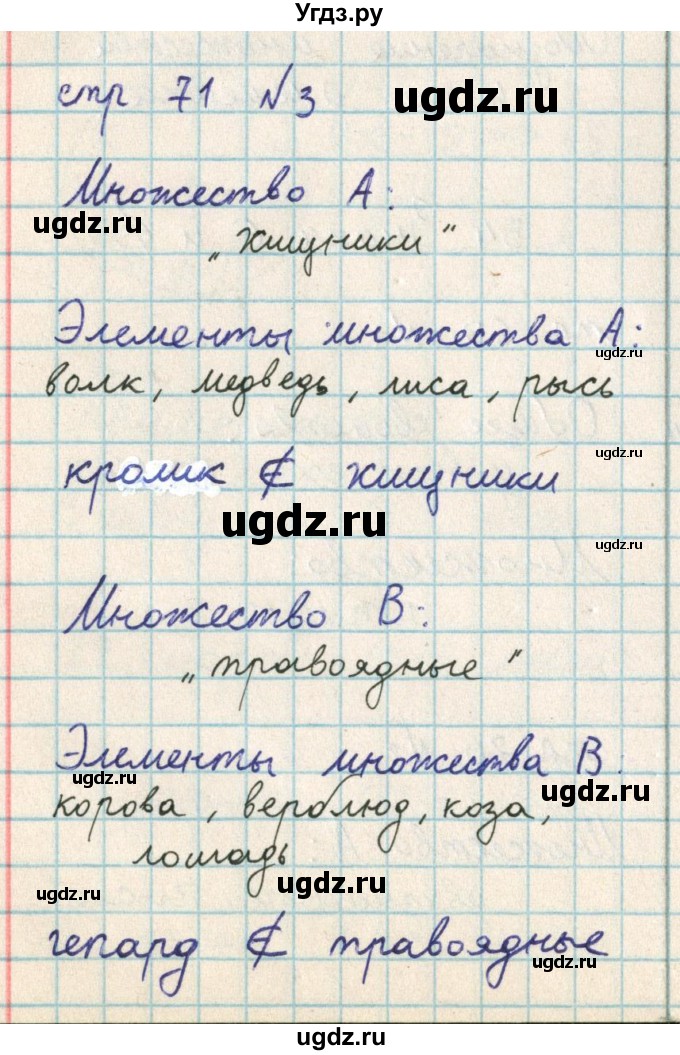 Угдз.ру
стр 71 №3
ugdz.ru
Множество А:
ugdz.ru
„хищники"
Элементы множества А:
ugdz.ru
волк, медведь, лиса, рысь
ugdz.ru
кролик ⊄ хищники
ugdz.ru
ugdz.ru
Множество В:
ugdz.ru
„травоядные"
Элементы множества В:
ugdz.ru
ugdz.ru
корова, верблюд, коза,
лошадь
ugdz.ru
ugdz.ru
гепард ⊄ травоядные
ugdz.ru
ugdz.ru